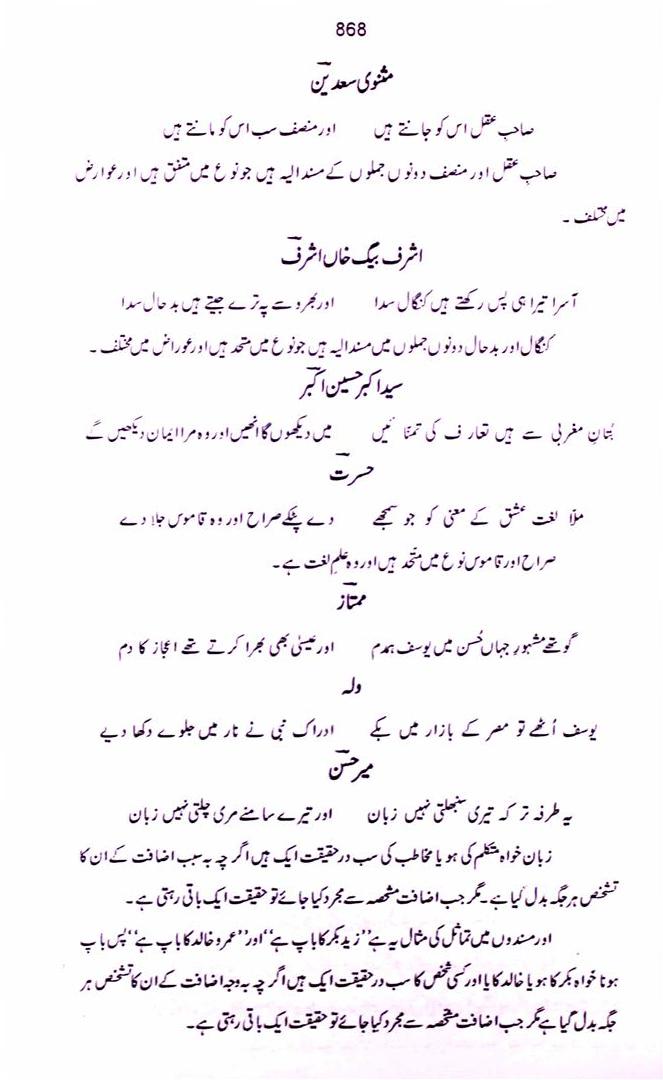 868
مثنوی سعدین
صاحبِ عقل اس کو جانتے ہیں اور منصف سب اس کو مانتے ہیں
صاحبِ عقل اور منصف دونوں جملوں کے مسندالیہ ہیں جو نوع میں متفق ہیں اور عوارض
میں مختلف ۔
اشرف بیگ خاں اشرف
آسرا تیرا ہی پس رکھتے ہیں کنگال سدا اور بھروسے پہ ترے جیتے ہیں بدحال سدا
کنگال اور بدحال دونوں جملوں میں مسندالیہ ہیں جو نوع میں متحد ہیں اور عوراض میں مختلف ۔
سید اکبر حسین اکبر
بُتانِ مغربی سے ہیں تعارف کی تمنّائیں میں دیکھوں گا انھیں اور وہ مرا ایمان دیکھیں گے
حسرت
ملّا لغت عشق کے معنی کو جو سمجھے دے پٹکے صراح اور وہ قاموس جلا دے
صراح اور قاموس نوع میں متّحد ہیں اور وہ علمِ لغت ہے ۔
ممتاز
گو تھے مشہورِ جہاں حُسن میں یوسف ہمدم اور عیسیٰ بھی بھرا کرتے تھے اعجاز کا دم
ولہ
یوسف اُٹھے تو مصر کے بازار میں بکے ادراک نبی نے نار میں جلوے دکھا دیے
میر حسن
یہ طرفہ تر کہ تیری سنبھلتی نہیں زبان اور تیرے سامنے مری چلتی نہیں زبان
زبان خواہ متکلم کی ہو یا مخاطب کی سب درحقیقت ایک ہیں اگرچہ بہ سبب اضافت کے ان کا
تشخص ہر جگہ بدل گیا ہے ۔ مگر جب اضافت مشخصہ سے مجرد کیا جائے تو حقیقت ایک باقی رہتی ہے ۔
اور مسندوں میں تماثل کی مثال یہ ہے ''زید بکر کا باپ ہے'' اور ''عمرو خالد کا باپ ہے'' پس باپ
ہونا خواہ بکر کا ہو یا خالد کا یا اور کسی شخص کا سب درحقیقت ایک ہیں اگرچہ بہ وجہ اضافت کے ان کا تشخص ہر
جگہ بدل گیا ہے مگر جب اضافت مشخصہ سے مجرد کیا جائے تو حقیقت ایک باقی رہتی ہے ۔